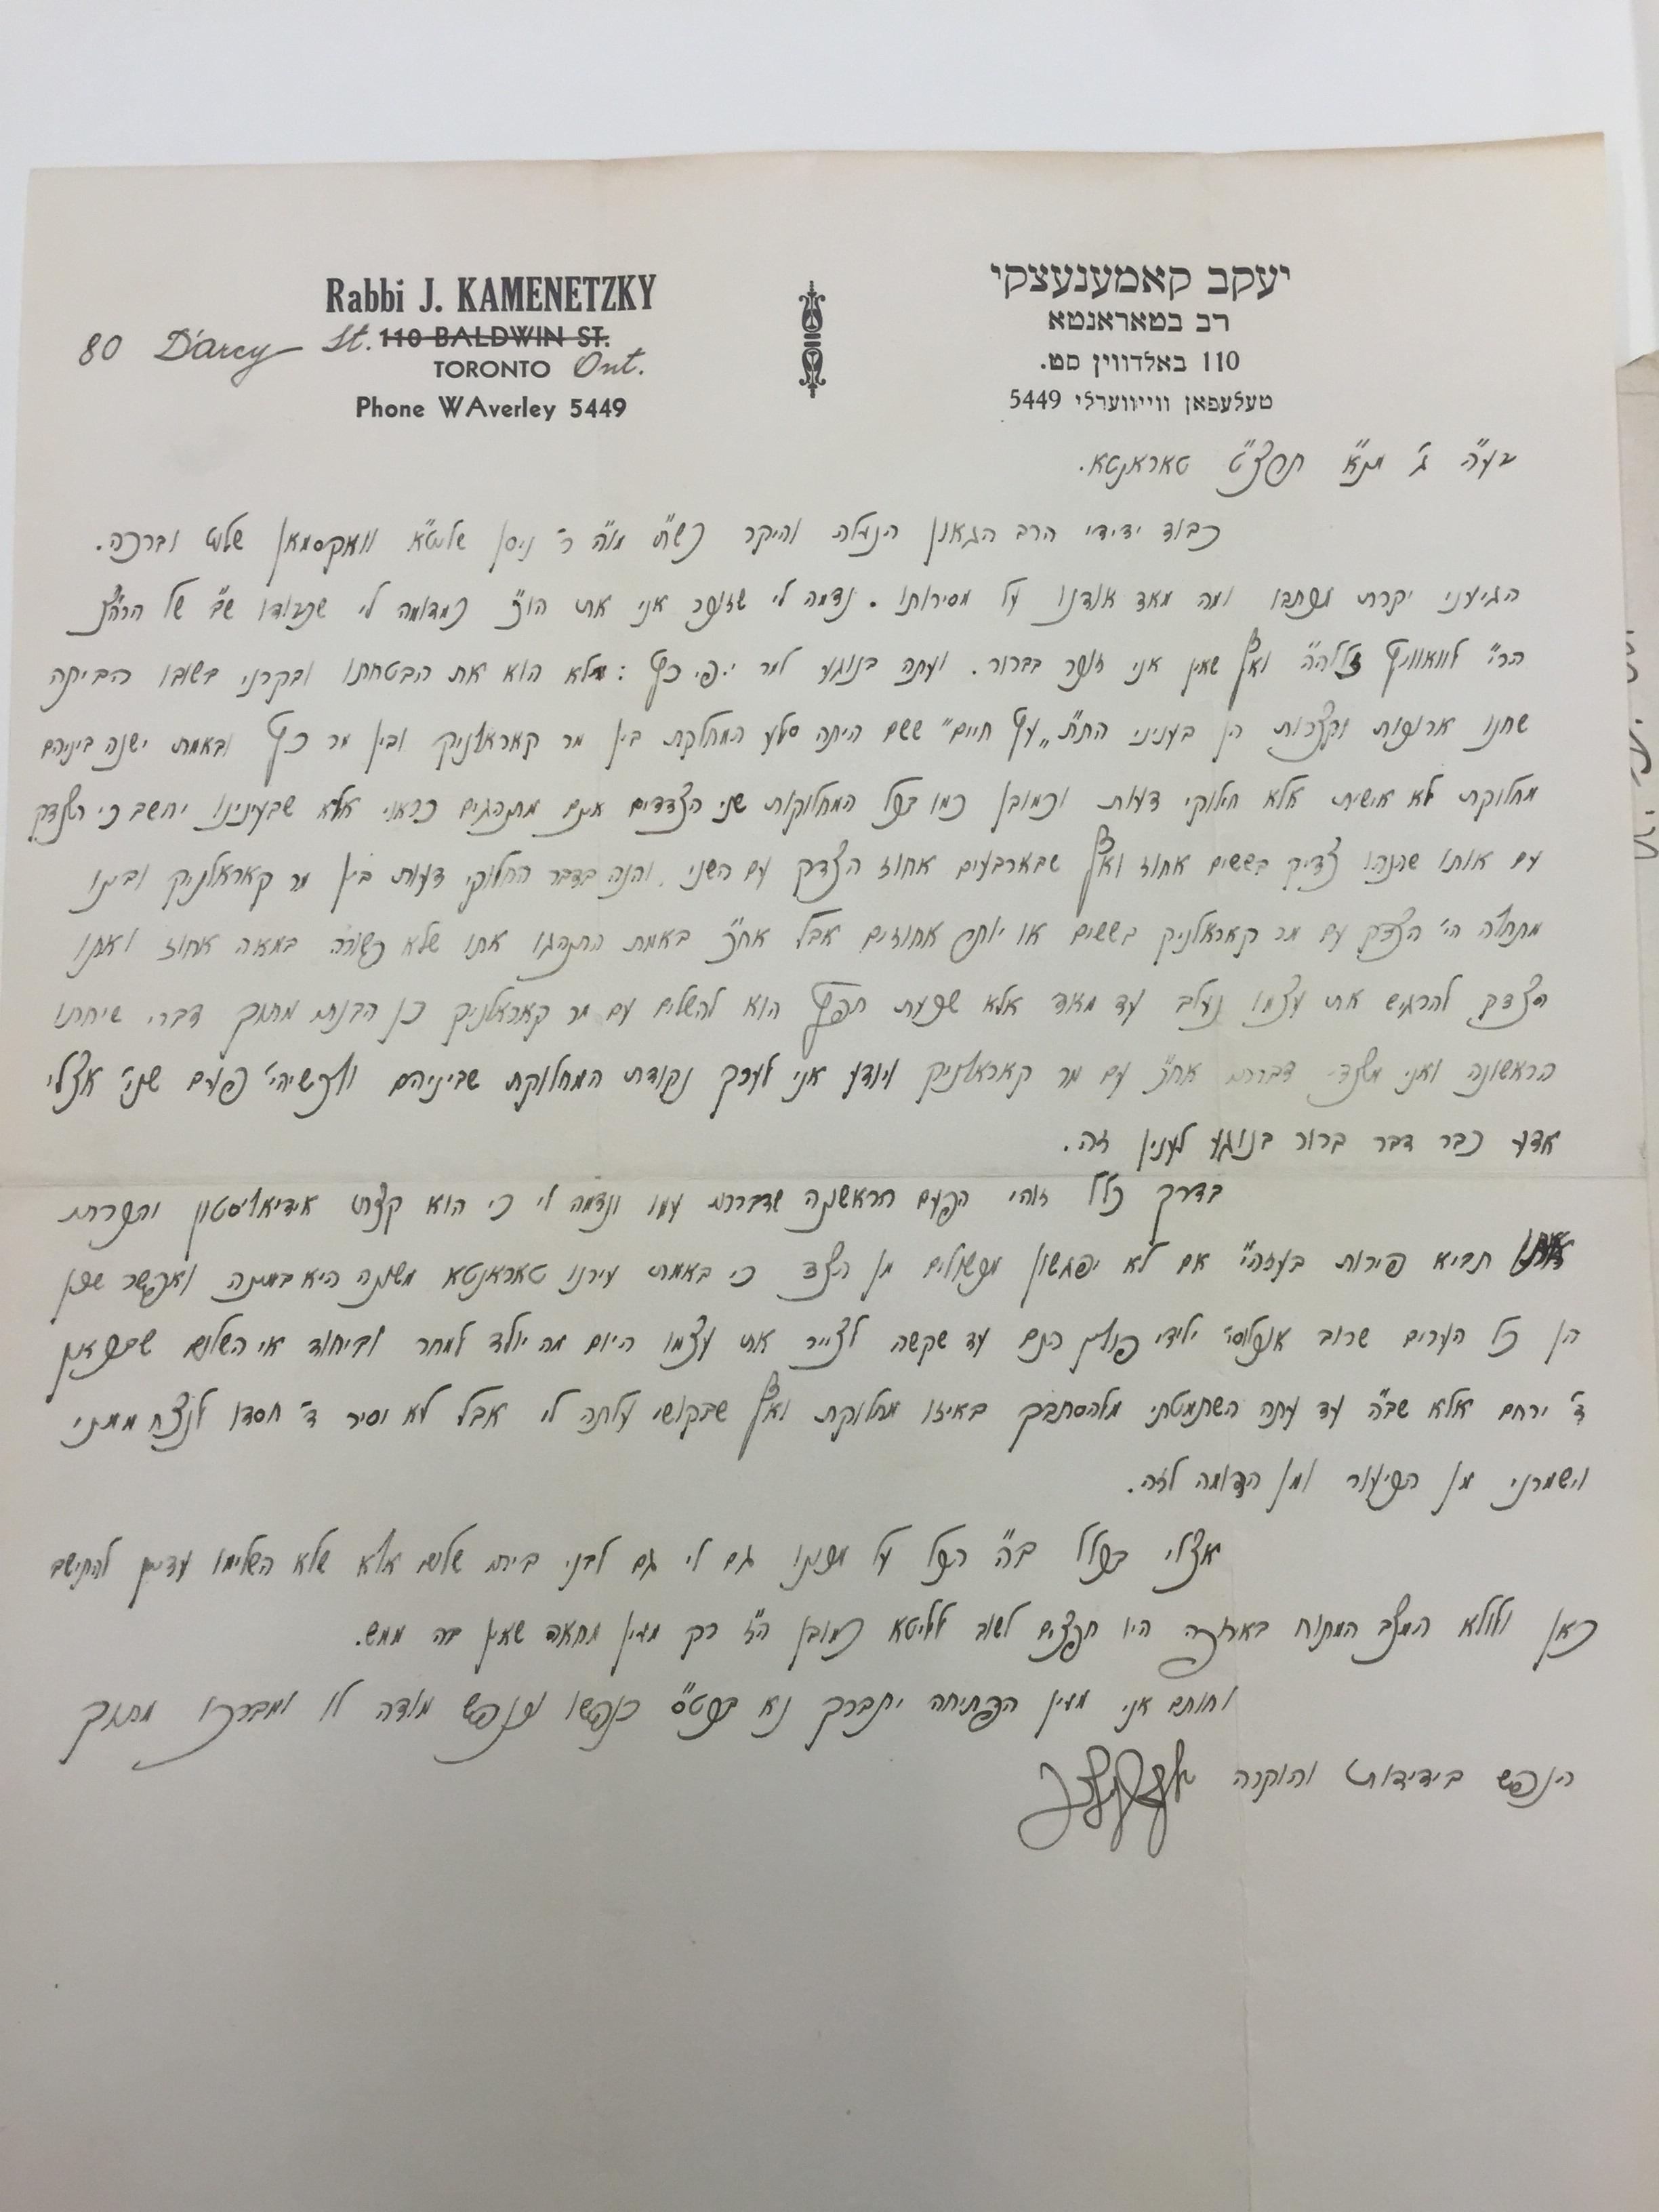 Rabbi J. KAMENETZKY
80 D'arcy St. 110 BALDWIN ST.
TORONTO Ont.
Phone WAverley 5449
יעקב קאמענעצקי
רב בטאראנטא
110 באלדווין סט.
טעלעפאן ווייווערלי 5449
בע"ה ג' תרצ"ט טאראנטא.
כבוד ידידי הרב הגאון הנעלה והיקר כש"ת מו"ה ר' ניסן שליט"א וואקסמאן שלום וברכה.
הגיעני יקרת מכתבו ומה מאד אודנו על מסירותו. נדמה לי שזוכר אני את כמדומה לי שכבודו של
הר"י ואף שאין אני זוכר בברור. ועתה בנוגע למר י.פ. כץ: מלא הוא את הבטחתו ובקרני בשובו הביתה
שחנו ארוכות וקצרות הן בעניני הת"ת "עץ חיים" ששם היתה סלע המחלקת בין מר קאראלניק ובין מר כץ ובאמת ישנה ביניהם
מחלוקת לא אישית אלא חילוקי דעות וכמובן כמו בכל המחלוקות שני הצדדים אינם מתנהגים כראוי אלא שבעינינו יחשב כי הצדק
עם אותו שהנהו צדיק בששים אחוז ואף שבארבעים אחוז הצדק עם השני. והנה בדבר החלוקי דעות בין מר קאראלניק ובינו
מתחלה הי' הצדק עם מר קאראלניק בששים או יותר אחוזים אבל אח"כ באמת התנהגו אתו שלא כשורה במאה אחוז ואתו
הצדק להרגיש את עצמו נעלב עד מאד אלא שכעת חפץ הוא להשלים עם מר קאראלניק כן הבנתי מתוך דברי שיחתו
הראשונה ואני מצדי דברתי אח"כ עם מר קאראלניק ויודע אני לערך נקודת המחלוקת שביניהם ולכשיהי' פעם שני' אצלי
אדע כבר דבר ברור בנוגע לענין זה.
בדרך כלל זוהי הפעם הראשונה שדברתי עמו ונדמה לי כי הוא קצת אידיאליסטון והכרתי
אותו תביא פירות בעזה"י אם לא יפגשון מכשולים מן הצד כי באמת עירנו טאראנטא משונה היא במינה ואפשר שכן
הן כל הערים שרוב אוכלוסי' ילידי פולין הנם עד שקשה לצייר את עצמו היום מה יולד למחר וביחוד אי השלום שבכאן
ד' ירחם אלא שב"ה עד עתה השתמטתי מלהסתבך באיזו מחלוקת ואף שבקושי עלתה לי אבל לא יסיר ד' חסדו לנצח ממני
וישמרני מן הכיעור ומן הדומה לזה.
אצלי בכלל ב"ה הכל על מכונו גם לי גם לבני ביתי שלום אלא שלא השלימו עדיין להתישב
כאן ולולא המצב המתוח בארופה היו חפצים לשוב לליטא כמובן הי"ז רק מעין מחאה שאין בה ממש.
וחותם אני מעין הפתיחה יתברך נא בכט"ס כנפשו וכנפש מודה לו ומברכו מתוך
הנפש בידידות והוקרה